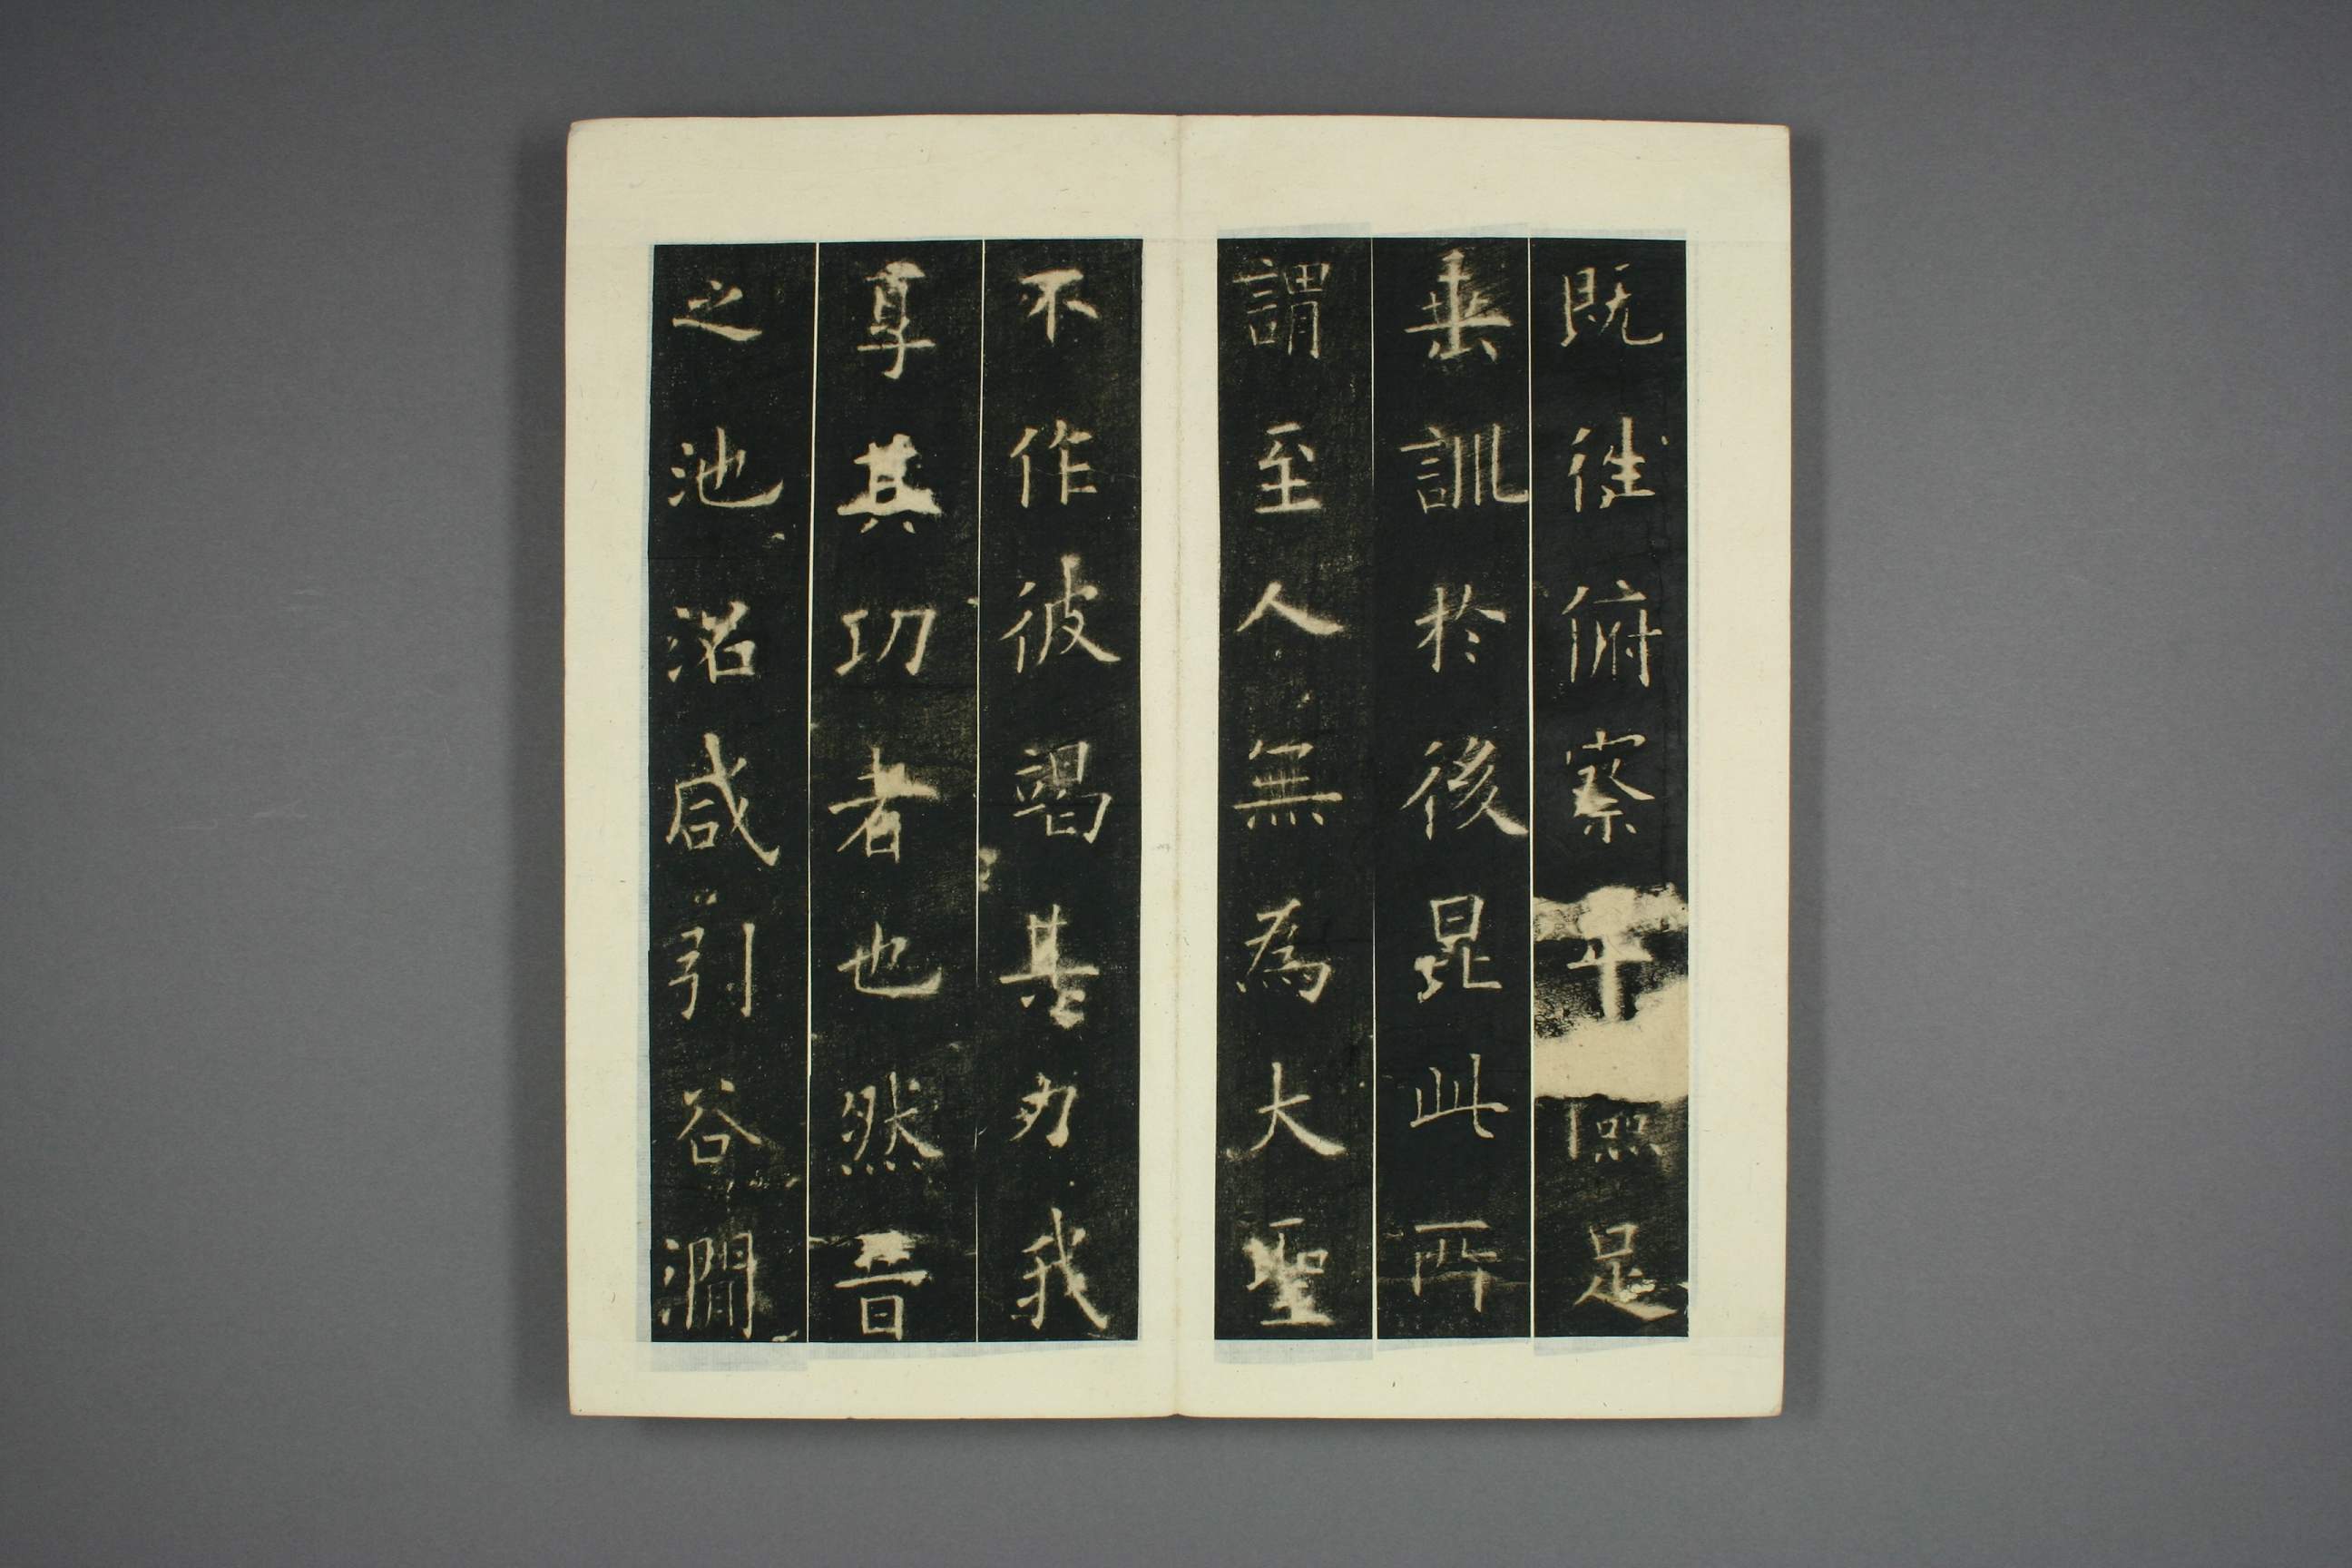 既往俯察卑儉足
垂訓於後昆此所
謂至人無為大聖
不作彼竭其力我
享其功者也然昔
之池沼咸引谷澗